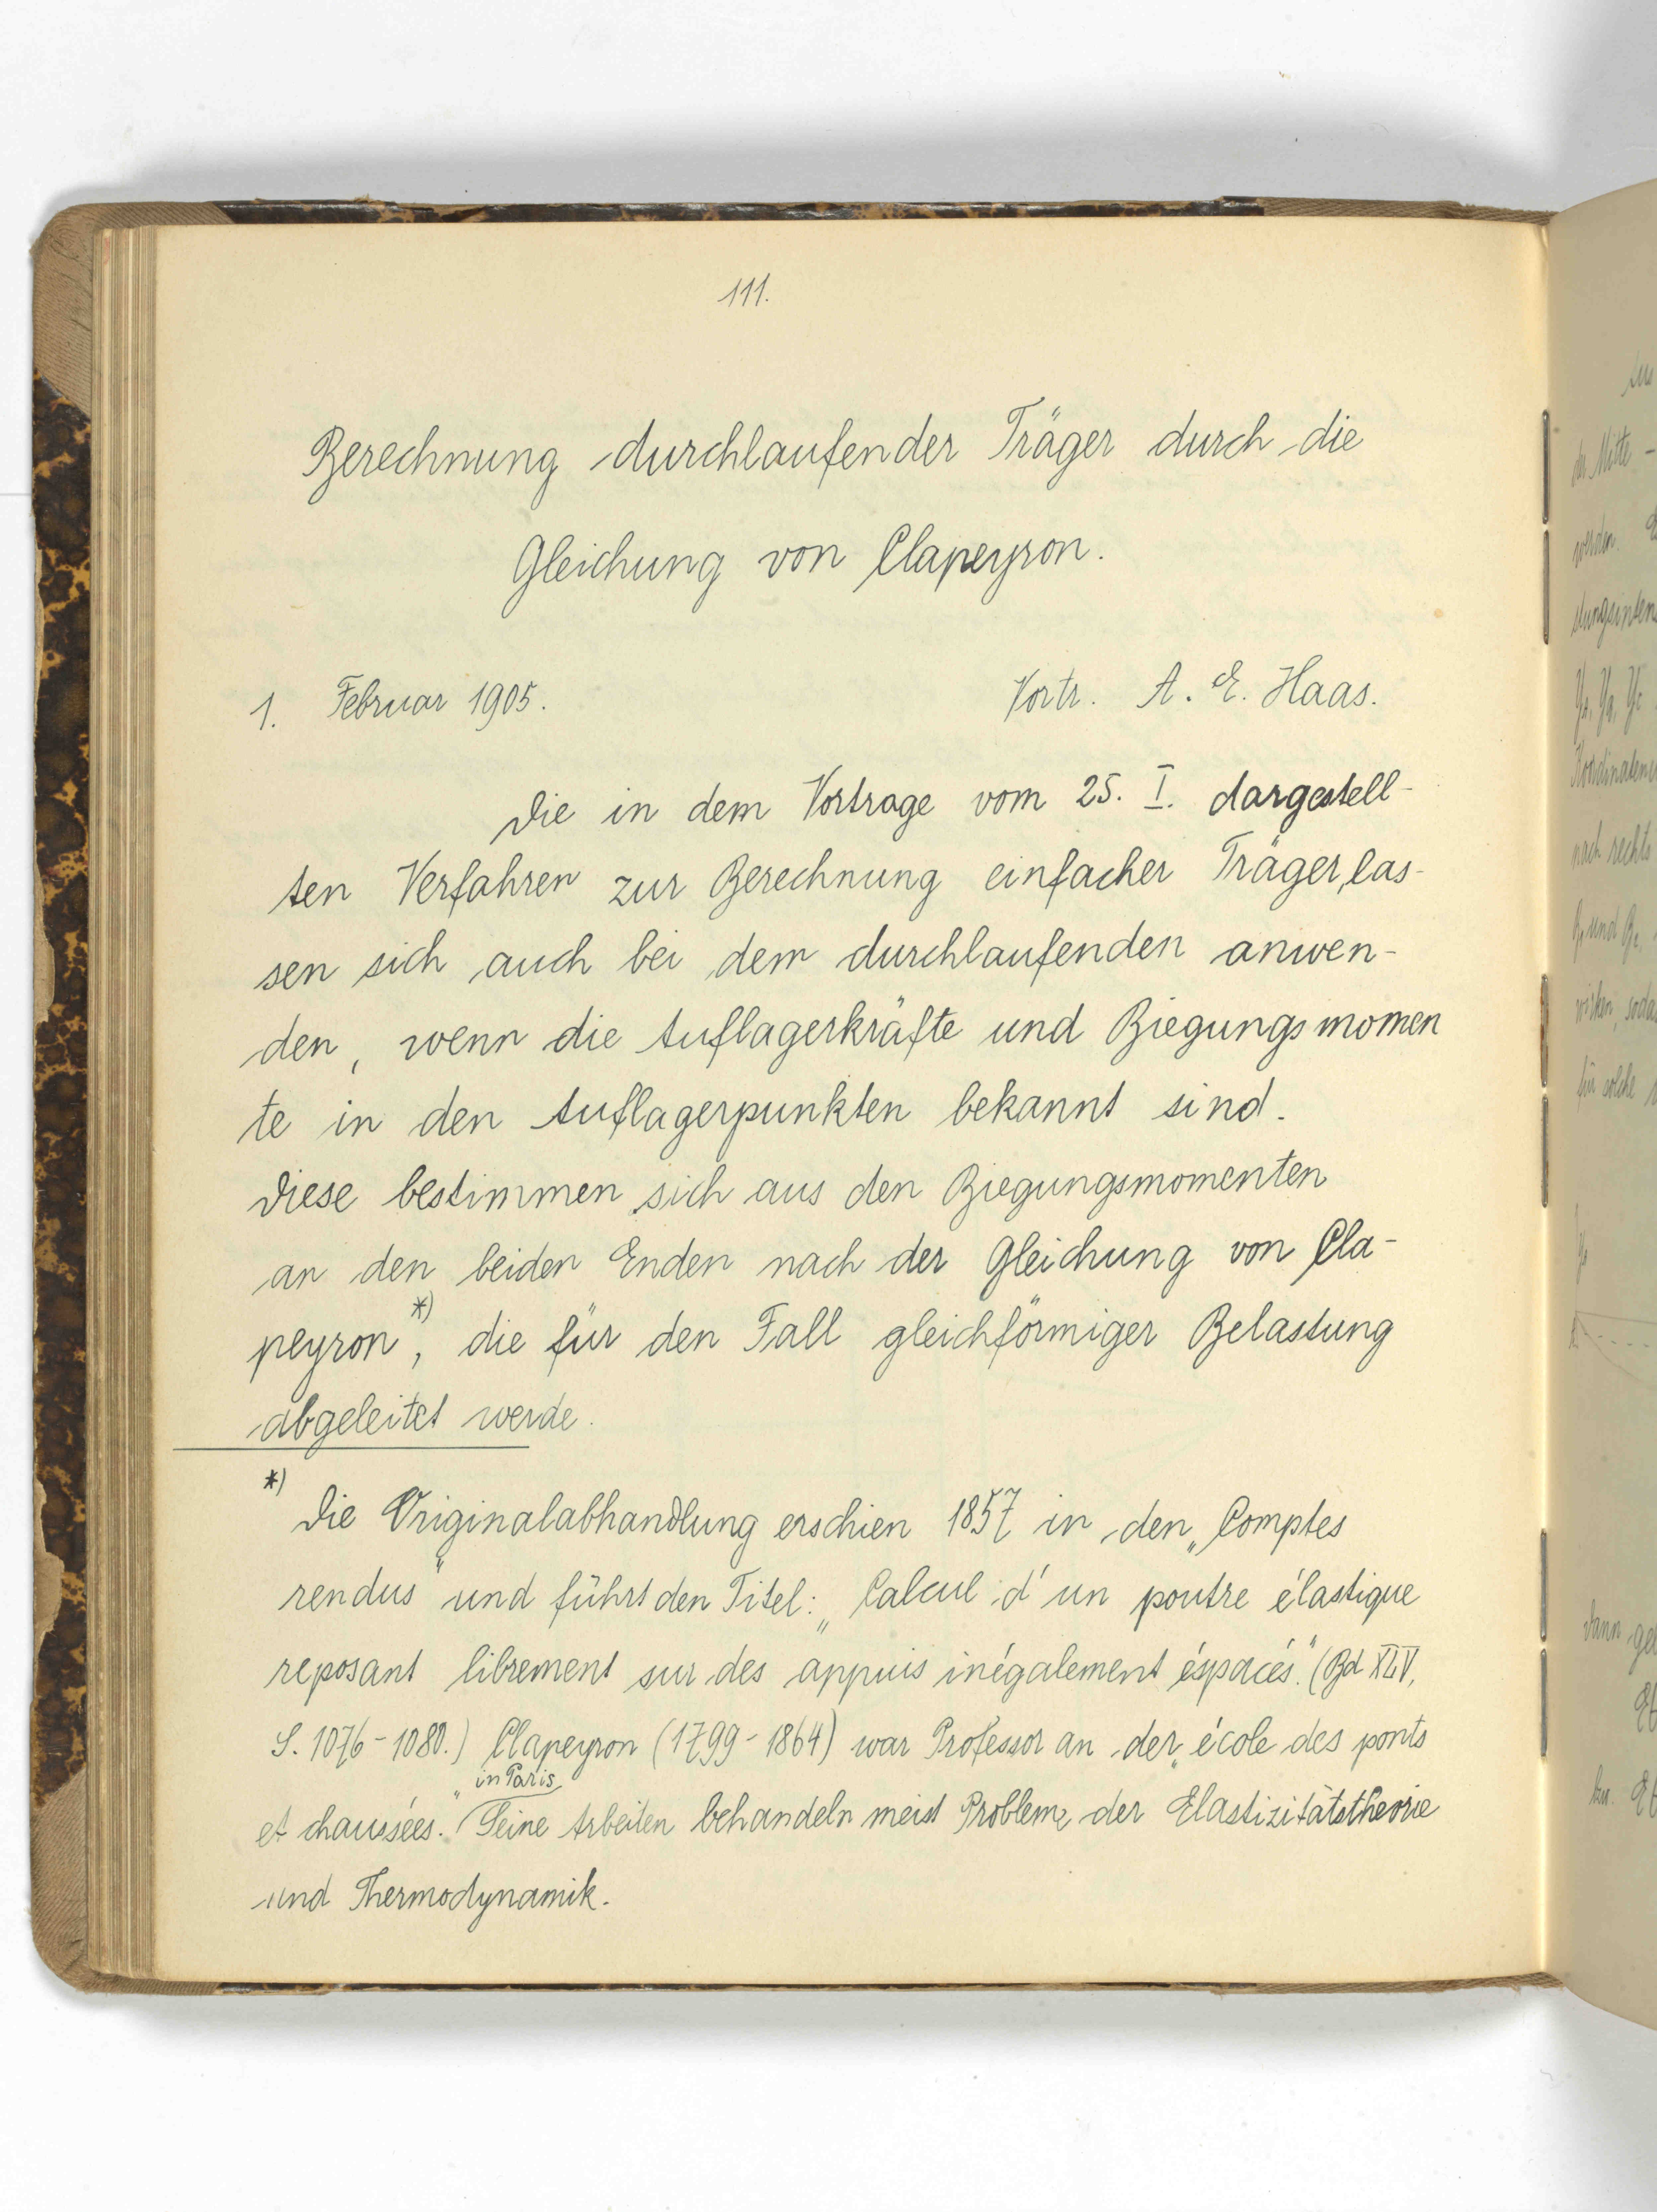 111.
Berechnung durchlaufender Träger durch die
Gleichung von Clapeyron.
1. Februar 1905.
Vortr. A. E. Haas.
Die in dem Vortrage vom 25. I. dargestell-
ten Verfahren zur Berechnung einfacher Träger, las-
sen sich auch bei dem durchlaufenden anwen-
den, wenn die Auflagerkräfte und Biegungsmomen
te in den Auflagerpunkten bekannt sind.
Diese bestimmen sich aus den Biegungsmomenten
an den beiden Enden nach der Gleichung von Cla-
peyron*), die für den Fall gleichförmiger Belastung
abgeleitet werde.
*) Die Originalabhandlung erschien 1857 in den „Comptes
rendus" und führt den Titel: „Calcul d'un poutre élastique
reposant librement sur des appuis inégalement éspacés." (Bd XLV,
S. 1076-1080.) Clapeyron (1799-1864) war Professor an der „école des ponts
et chaussées." in Paris Seine Arbeiten behandeln meist Probleme der Elastizitätstheorie
und Thermodynamik.
der Mitte -
werden.
nach rechts
wirken, sodas
für solche